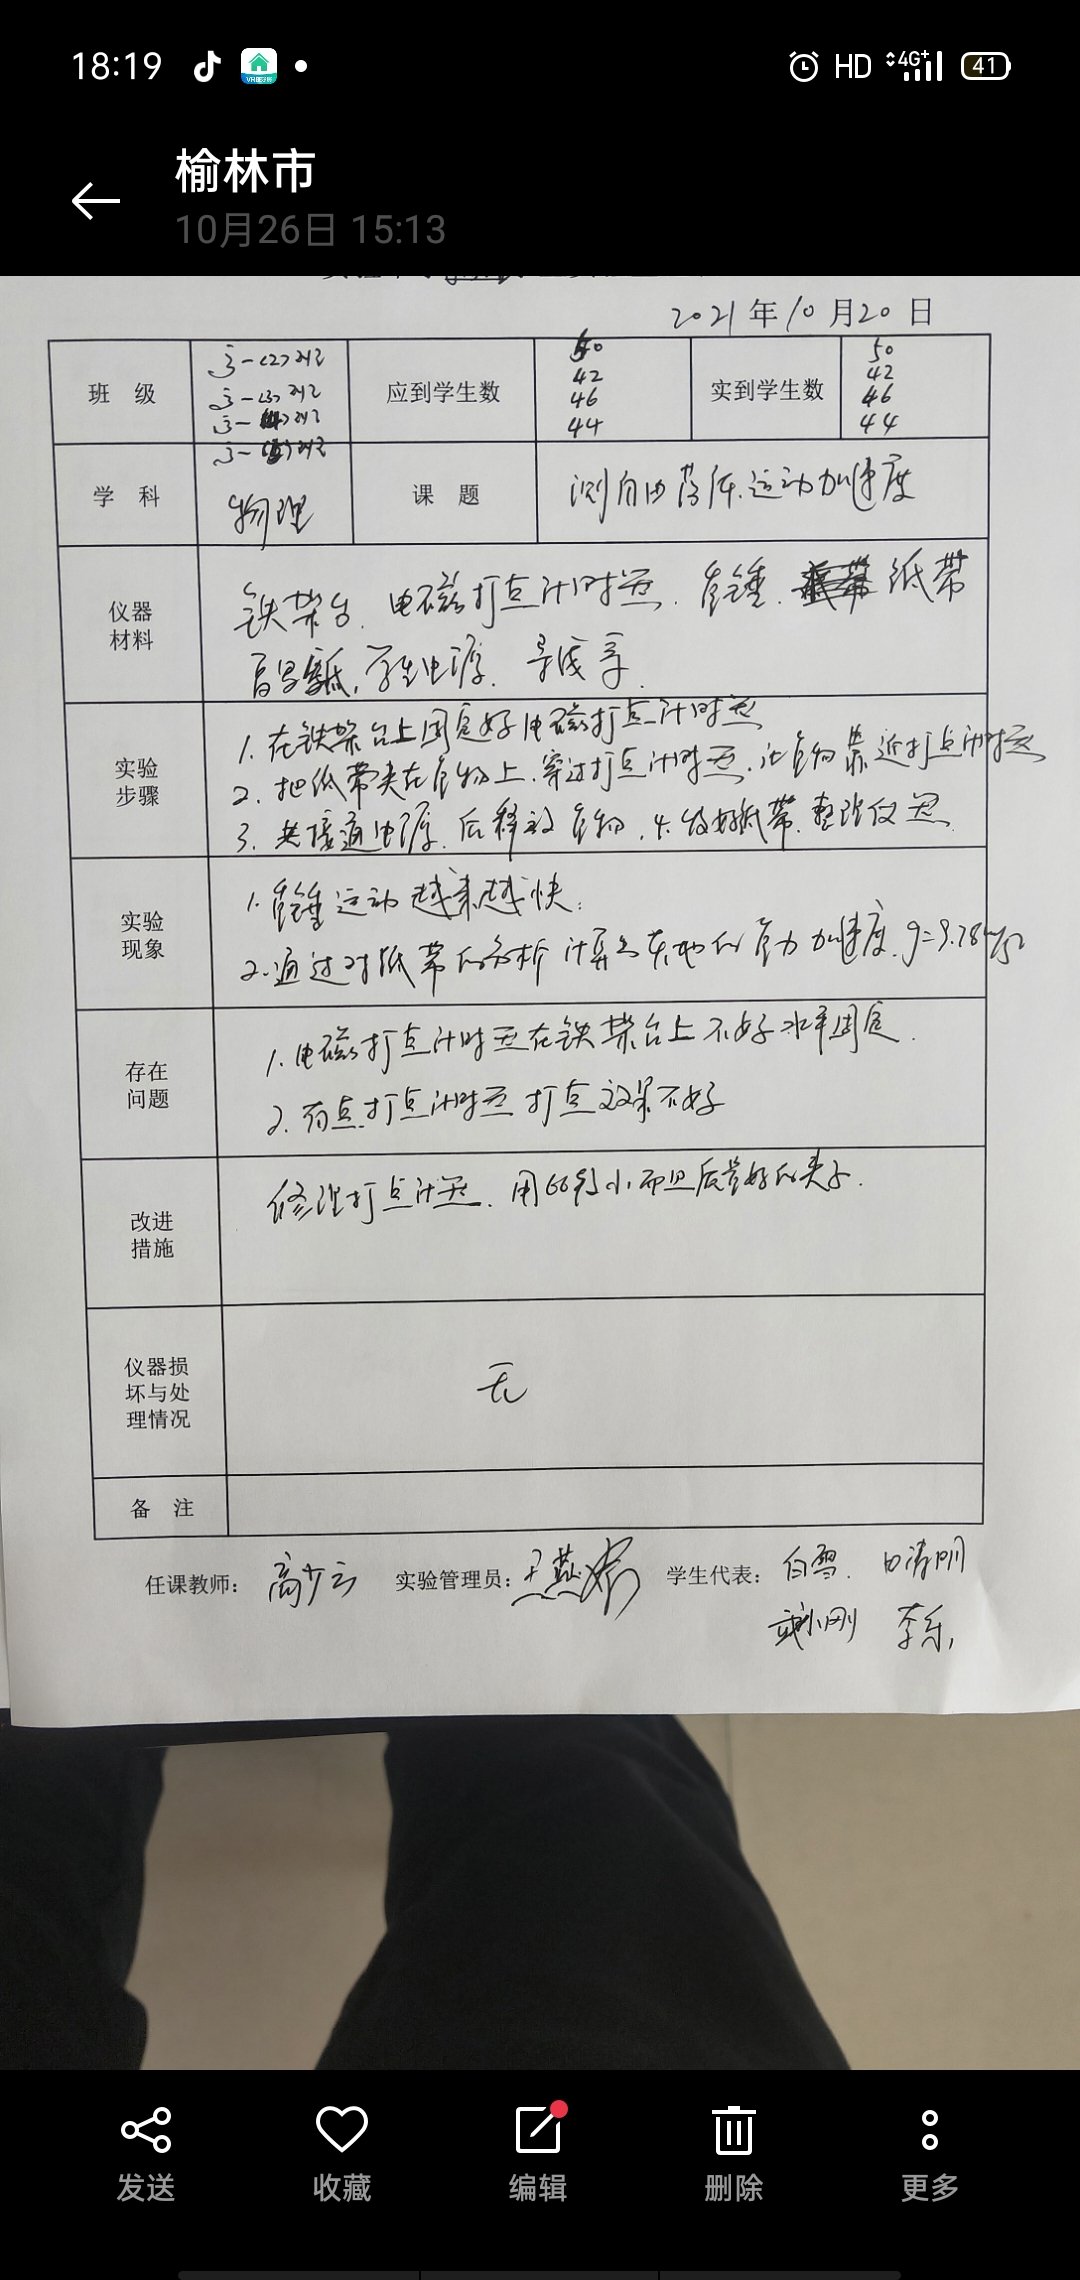 18:19 HD 4G+ 41
榆林市
10月26日 15:13
2021年10月20日
班 级 高一(2)班 应到学生数 50 实到学生数 50
高一(3)班 42 42
高一(4)班 46 46
高一(5)班 44 44
学 科 物理 课 题 测自由落体运动加速度
仪器材料
铁架台、电磁打点计时器、重锤、纸带
学生电源、导线等
实验步骤
1. 在铁架台上固定好电磁打点计时器
2. 把纸带夹在重物上,穿过打点计时器,让重物靠近打点计时器
3. 先接通电源,后释放重物,4. 纸带,整理仪器
实验现象
1. 重锤运动越来越快.
2. 通过对纸带的分析计算出本地的重力加速度.g=9.78m/s²
存在问题
1. 电磁打点计时器在铁架台上不好水平固定.
2. 有点打点计时器打点效果不好
改进措施
修理打点计器、用 小而且质量好的夹子.
仪器损坏与处理情况
无
备 注
任课教师: 高少云 实验管理员: 学生代表: 白雪
小刚 李乐
发送 收藏 编辑 删除 更多